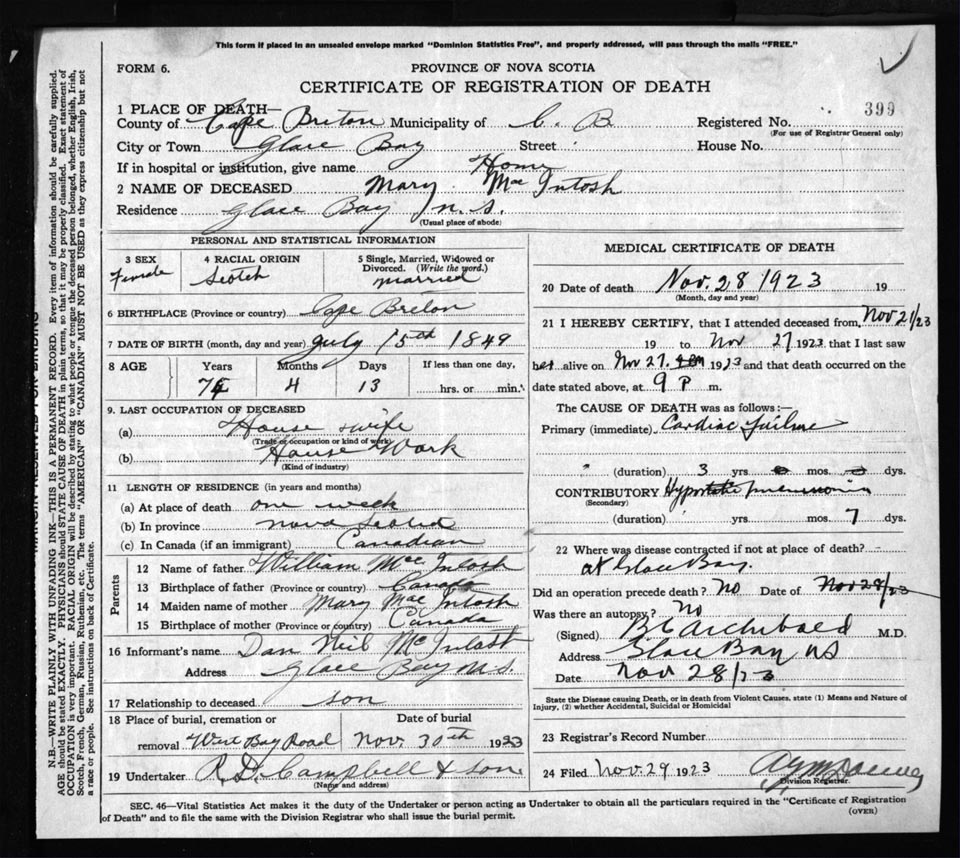 This form if placed in an unsealed envelope marked "Dominion Statistics Free", and properly addressed, will pass through the mails "FREE."
FORM 6.
PROVINCE OF NOVA SCOTIA
CERTIFICATE OF REGISTRATION OF DEATH
399
1 PLACE OF DEATH—
County of Cape Breton Municipality of C. B Registered No.
(For use of Registrar General only)
City or Town Glace Bay Street House No.
If in hospital or institution, give name Home
2 NAME OF DECEASED Mary MacIntosh
Residence Glace Bay N.S.
(Usual place of abode)
PERSONAL AND STATISTICAL INFORMATION
3 SEX 4 RACIAL ORIGIN 5 Single, Married, Widowed or Divorced. (Write the word.)
Female Scotch married
6 BIRTHPLACE (Province or country) Cape Breton
7 DATE OF BIRTH (month, day and year) July 15th 1849
8 AGE Years Months Days If less than one day,
74 4 13 hrs. or min.
9. LAST OCCUPATION OF DECEASED
(a) House wife
(Trade or occupation or kind of work)
(b) House Work
(Kind of industry)
11 LENGTH OF RESIDENCE (in years and months)
(a) At place of death one week
(b) In province Nova Scotia
(c) In Canada (if an immigrant) Canadian
Parents
12 Name of father William MacIntosh
13 Birthplace of father (Province or country) Canada
14 Maiden name of mother Mary MacIntosh
15 Birthplace of mother (Province or country) Canada
16 Informant's name Dan Neil McIntosh
Address Glace Bay N.S.
17 Relationship to deceased son
18 Place of burial, cremation or Date of burial
removal West Bay Road Nov. 30th 1923
19 Undertaker R.D. Campbell & son
(Name and address)
MEDICAL CERTIFICATE OF DEATH
20 Date of death Nov. 28 1923 19
(Month, day and year)
21 I HEREBY CERTIFY, that I attended deceased from Nov 21/23
19 to Nov 27 1923 that I last saw
her alive on Nov 27. 1923 and that death occurred on the
date stated above, at 9 P m.
The CAUSE OF DEATH was as follows:—
Primary (immediate) Cardiac failure
" (duration) 3 yrs. mos. dys.
CONTRIBUTORY Hypostatic pneumonia
(Secondary)
(duration) yrs. mos. 7 dys.
22 Where was disease contracted if not at place of death?
at Glace Bay.
Did an operation precede death? No Date of Nov 28/23
Was there an autopsy? No
(Signed) B C Archibald M.D.
Address Glace Bay NS
Date Nov 28/23
State the Disease causing Death, or in death from Violent Causes, state (1) Means and Nature of
Injury, (2) whether Accidental, Suicidal or Homicidal
23 Registrar's Record Number
24 Filed Nov. 29 1923
Division Registrar.
SEC. 46—Vital Statistics Act makes it the duty of the Undertaker or person acting as Undertaker to obtain all the particulars required in the "Certificate of Registration
of Death" and to file the same with the Division Registrar who shall issue the burial permit.
(OVER)
MARGIN RESERVED FOR BINDING
N.B.—WRITE PLAINLY WITH UNFADING INK—THIS IS A PERMANENT RECORD. Every item of information should be carefully supplied.
AGE should be stated EXACTLY. PHYSICIANS should STATE CAUSE OF DEATH in plain terms, so that it may be properly classified. Exact statement of
OCCUPATION is very important. RACIAL ORIGIN will be described by stating to what people or tongue the deceased person belonged, whether English, Irish,
Scotch, French, German, Russian, Ruthenian, etc. The terms "AMERICAN" OR "CANADIAN" MUST NOT BE USED as they express citizenship but not
a race or people. See instructions on back of Certificate.